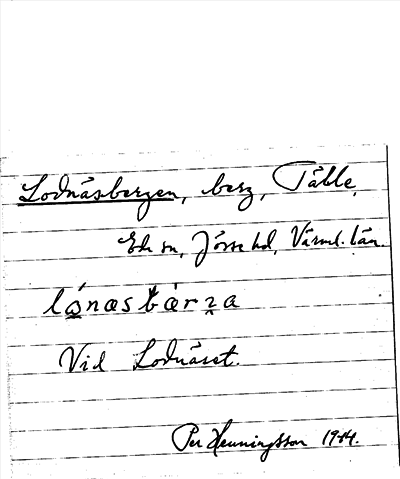 Lodnäsbergen, berg, Tälle,
Eda sn, Jösse hd, Värml. län.
lånæsbærza
Vid Lodnäset.
Per Henningsson 1944.